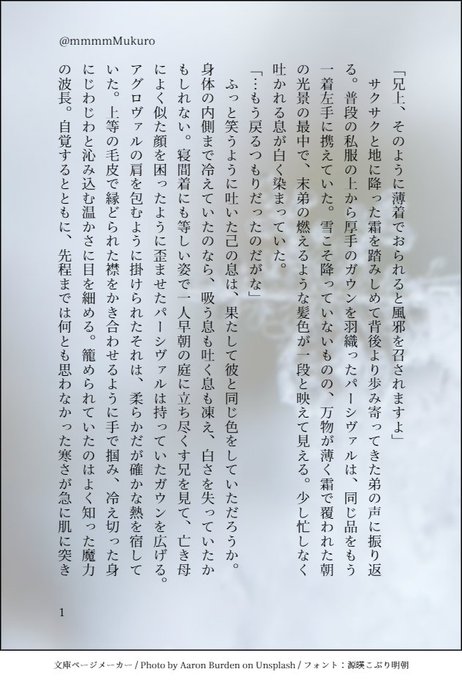 @mmmmMukuro
「兄上、そのように薄着でおられると風邪を召されますよ」
サクサクと地に降った霜を踏みしめて背後より歩み寄ってきた弟の声に振り返
る。普段の私服の上から厚手のガウンを羽織ったパーシヴァルは、同じ品をもう
一着左手に携えていた。雪こそ降っていないものの、万物が薄く霜で覆われた朝
の光景の最中で、末弟の燃えるような髪色が一段と映えて見える。少し忙しなく
吐かれる息が白く染まっていた。
「…もう戻るつもりだったのだがな」
ふっと笑うように吐いた己の息は、果たして彼と同じ色をしていただろうか。
身体の内側まで冷えていたのなら、吸う息も吐く息も凍え、白さを失っていたか
もしれない。寝間着にも等しい姿で一人早朝の庭に立ち尽くす兄を見て、亡き母
によく似た顔を困ったように歪ませたパーシヴァルは持っていたガウンを広げる。
アグロヴァルの肩を包むように掛けられたそれは、柔らかだが確かな熱を宿して
いた。上等の毛皮で縁どられた襟をかき合わせるように手で掴み、冷え切った身
にじわじわと沁み込む温かさに目を細める。籠められていたのはよく知った魔力
の波長。自覚するとともに、先程までは何とも思わなかった寒さが急に肌に突き
1
文庫ページメーカー / Photo by Aaron Burden on Unsplash / フォント：源暎こぶり明朝